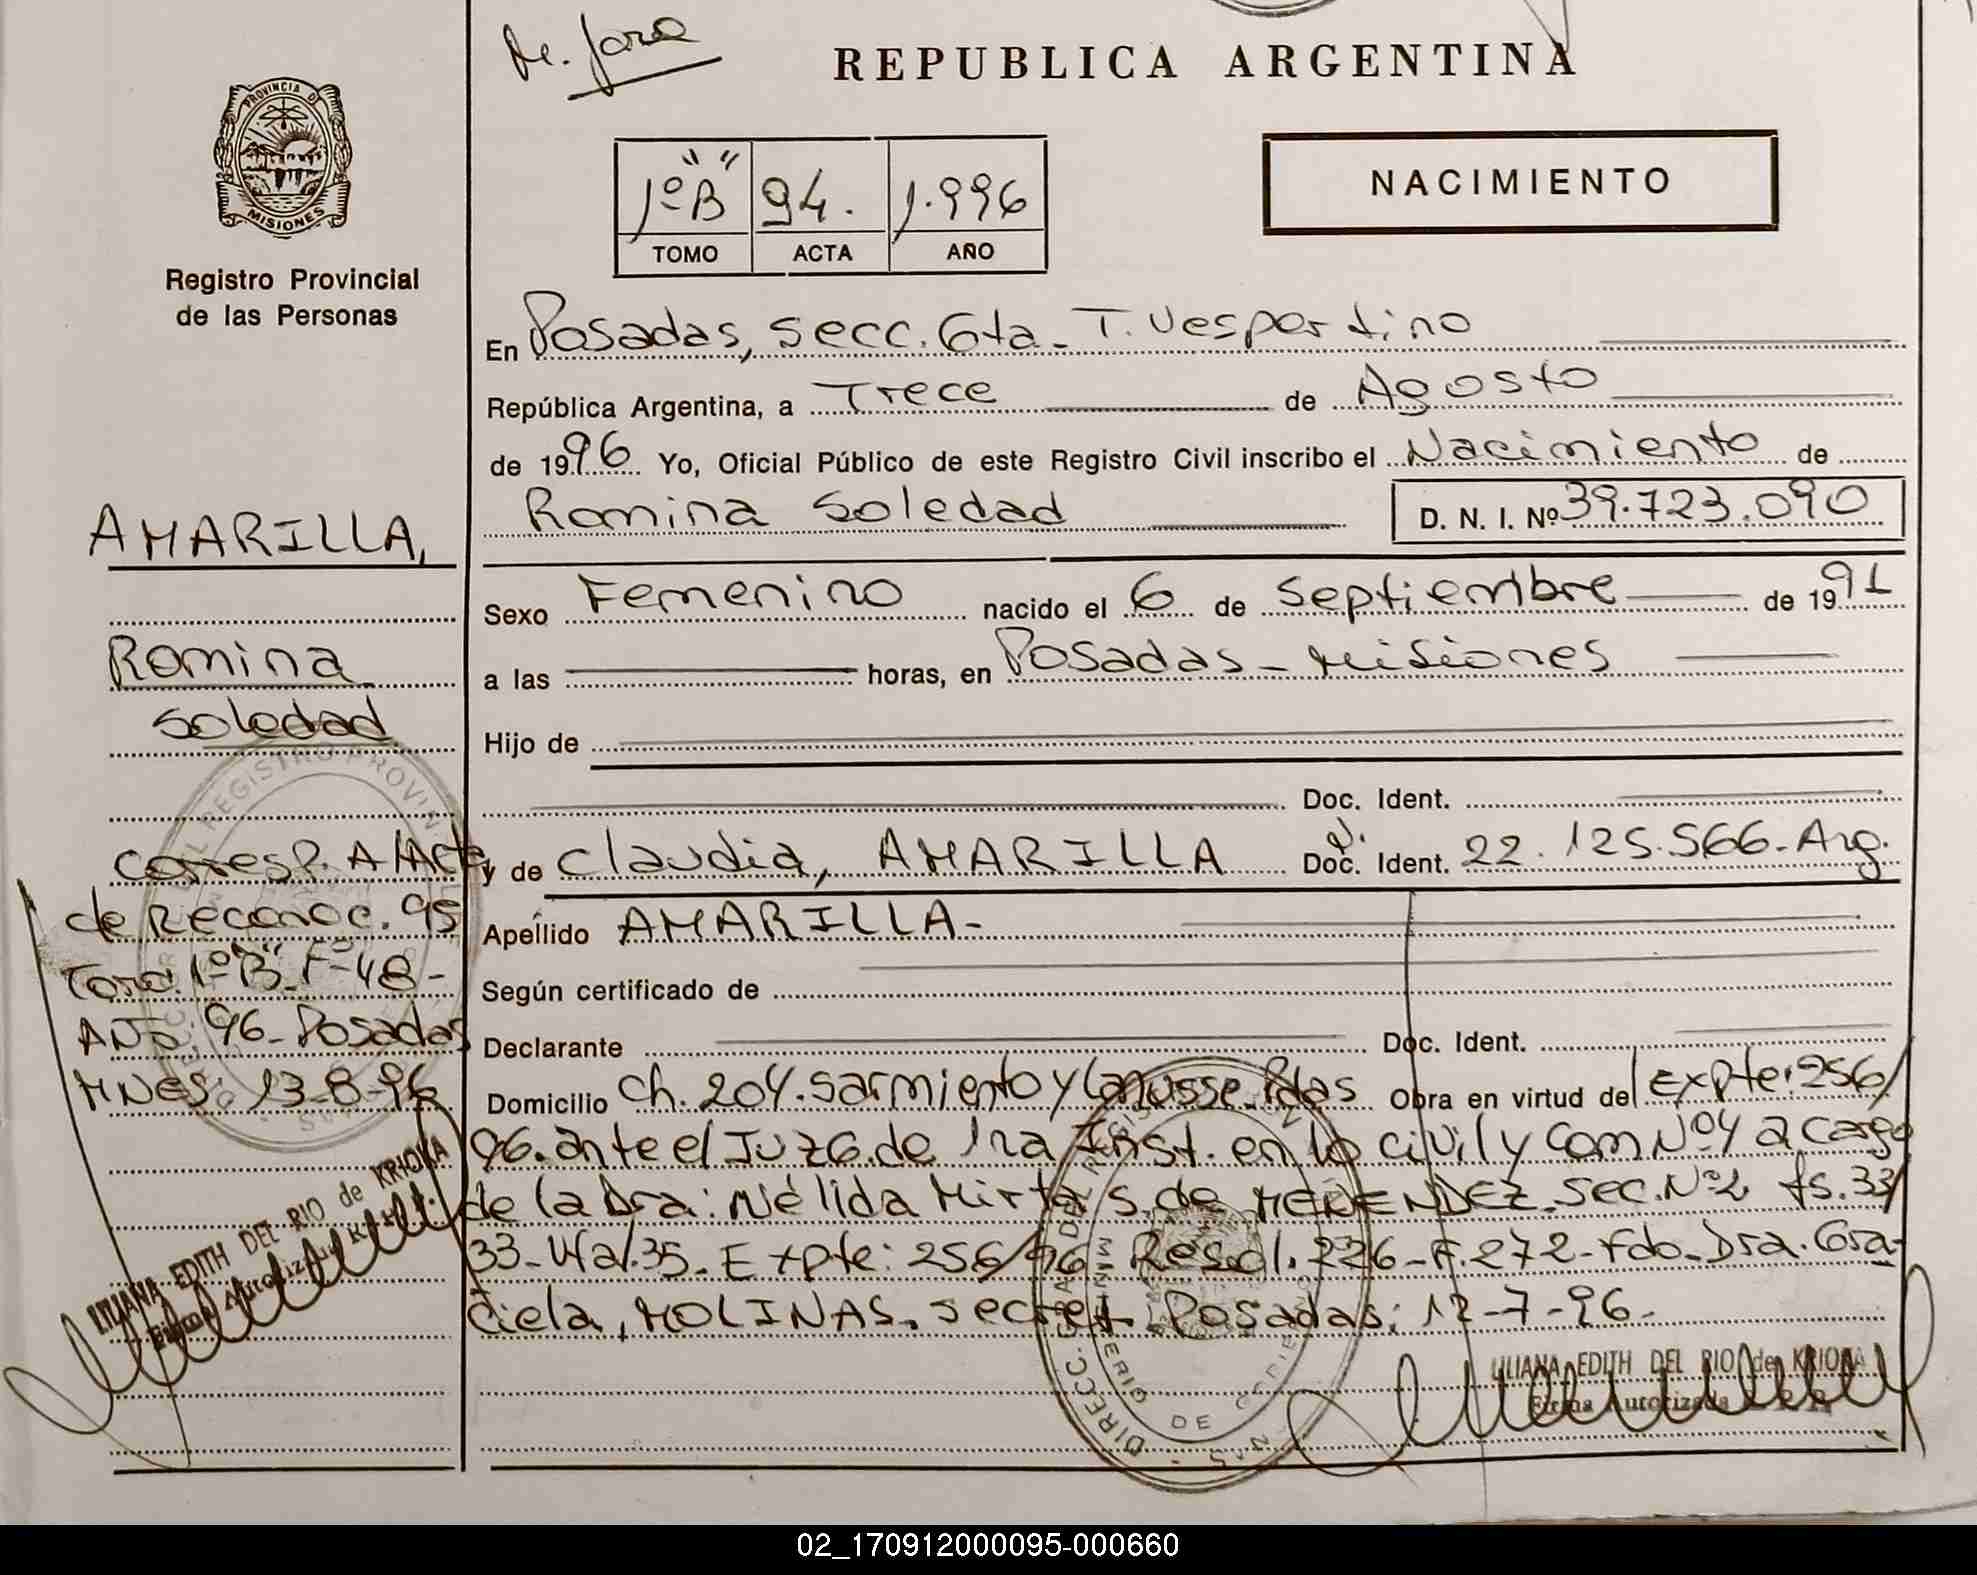 M. Jara
REPUBLICA ARGENTINA
PROVINCIA DE
MISIONES
Registro Provincial
de las Personas
1º "B" 94. 1.996
TOMO ACTA AÑO
NACIMIENTO
En Posadas, secc. 6ta - T. Vespertino
República Argentina, a Trece de Agosto
de 1996 Yo, Oficial Público de este Registro Civil inscribo el Nacimiento de
Romina Soledad D. N. I. Nº 39.723.090
Sexo Femenino nacido el 6 de Septiembre de 1991
a las horas, en Posadas - Misiones
Hijo de
Doc. Ident.
y de Claudia, AMARILLA Doc. Ident. 22.125.566 - Arg.
Apellido AMARILLA -
Según certificado de
Declarante Doc. Ident.
Domicilio Ch. 204. Sarmiento y Lanusse. Pdas Obra en virtud del Expte: 256/
96. ante el Juzg. de 1ra Inst. en lo civil y Com Nº4 a cargo
de la Dra: Nélida Mirta S. de MENENDEZ. Sec. Nº2 fs. 33/
33 - 35. Expte: 256/96 Resol. 226 - F. 272 - Fdo. Dra. Gra-
ciela, MOLINAS. secret. Posadas: 12-7-96.
LILIANA EDITH DEL RIO de KRIOKA
Firma Autorizada
AMARILLA,
Romina
Soledad
Corresp. Al Acta
de Reconoc. 95
Tomo: 1º "B" Fº 48 -
Año: 96 - Posadas
MNES: 13-8-96
LILIANA EDITH DEL RIO de KRIOKA
Firma Autorizada
02_170912000095-000660